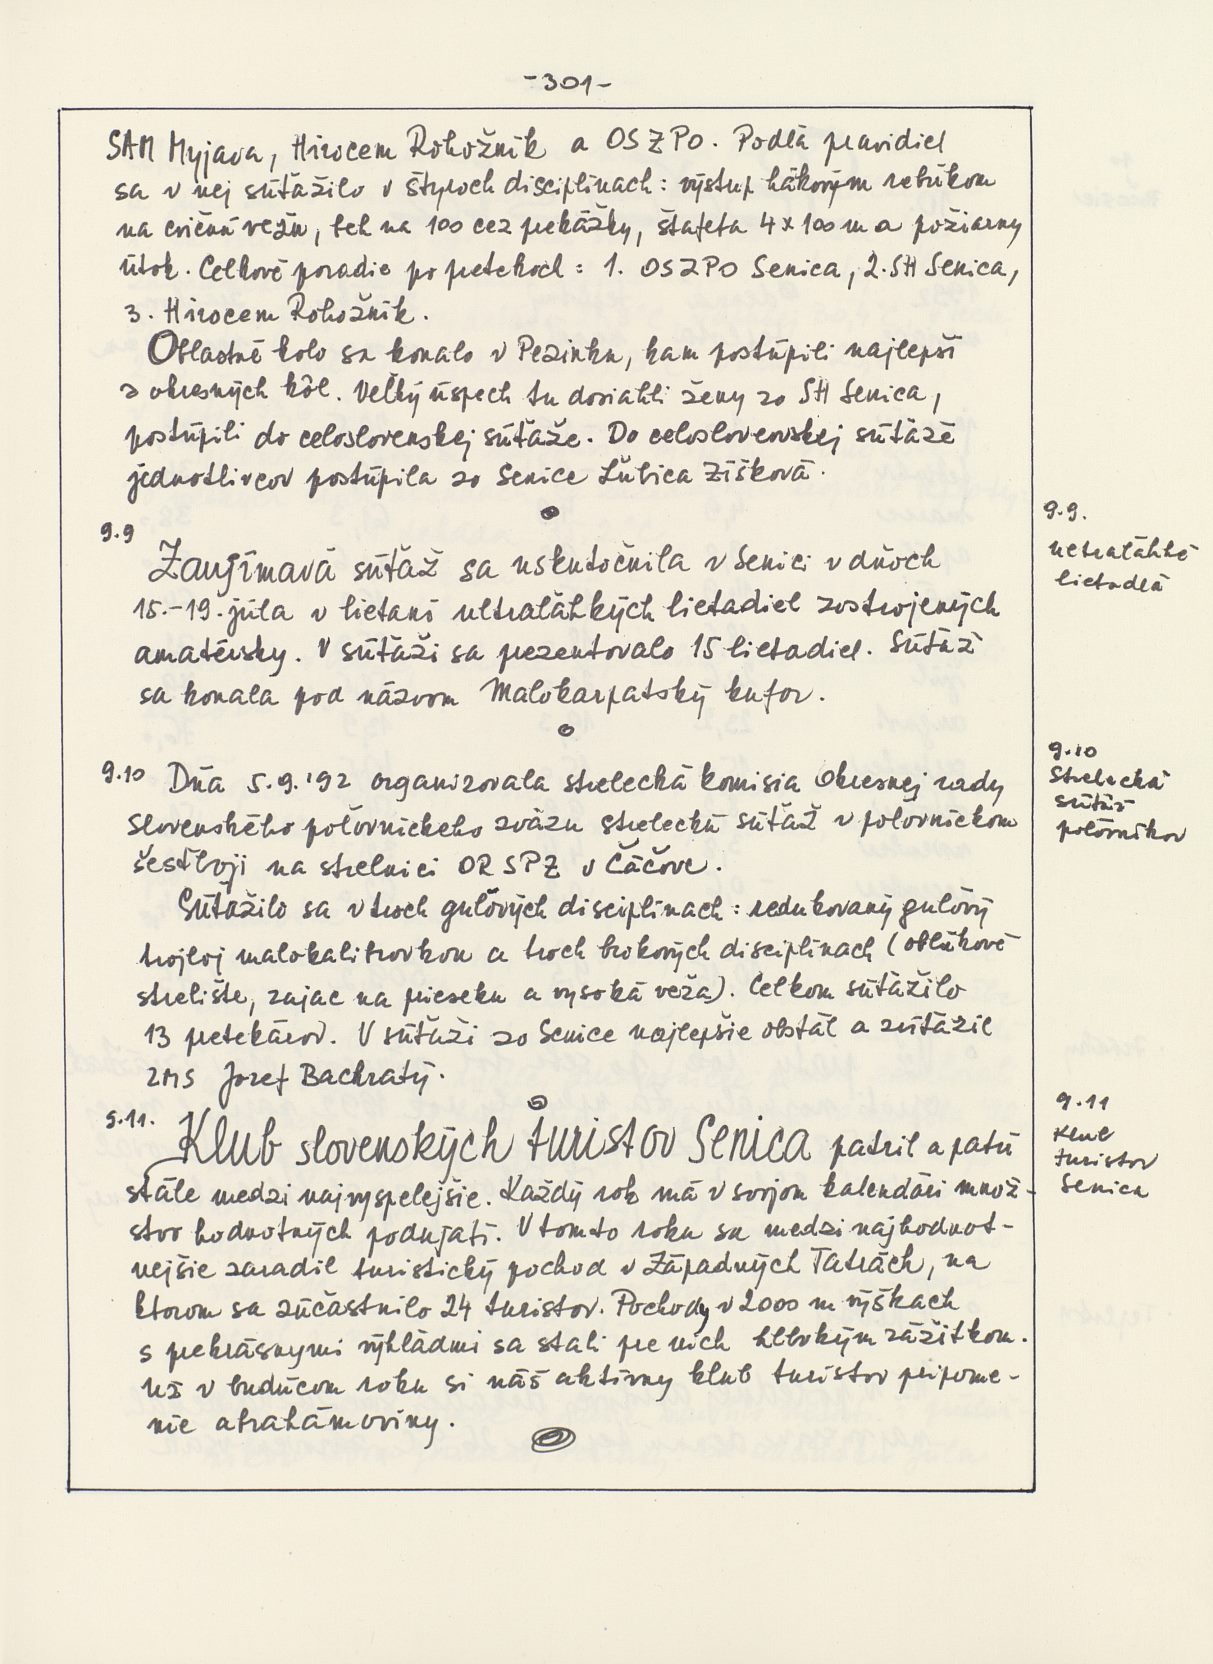 -301-
SAM Myjava, Hirocem Rohožník a OSZPO. Podľa pravidiel
sa v nej súťažilo v štyroch disciplínach: výstup hákovým rebríkom
na cvičnú vežu, beh na 100 cez prekážky, štafeta 4x100 m a požiarny
útok. Celkové poradie po pretekoch: 1. OSZPO Senica, 2. SH Senica,
3. Hirocem Rohožník.
Oblastné kolo sa konalo v Pezinku, kam postúpili najlepší
z okresných kôl. Veľký úspech tu dosiahli ženy zo SH Senica,
postúpili do celoslovenskej súťaže. Do celoslovenskej súťaže
jednotlivcov postúpila zo Senice Ľubica Zíšková.
9.9
Zaujímavá súťaž sa uskutočnila v Senici v dňoch
15.-19. júla v lietaní ultraľahkých lietadiel zostrojených
amatérsky. V súťaži sa prezentovalo 15 lietadiel. Súťaž
sa konala pod názvom Malokarpatský kufor.
9.9.
ultraľahké
lietadlá
9.10 Dňa 5.9.'92 organizovala strelecká komisia Okresnej rady
Slovenského poľovníckeho zväzu streleckú súťaž v poľovníckom
šesťboji na strelnici OR SPZ v Čáčove.
Súťažilo sa v troch guľových disciplínach: redukovaný guľový
trojboj malokalibrovkou a troch brokových disciplínach (oblúkové
strelište, zajac na prieseku a vysoká veža). Celkom súťažilo
13 pretekárov. V súťaži zo Senice najlepšie obstál a zvíťazil
ZMS Jozef Bachratý.
9.10
Strelecká
súťaž
poľovníkov
9.11.
Klub slovenských turistov Senica patril a patrí
stále medzi najvyspelejšie. Každý rok má v svojom kalendári množ-
stvo hodnotných podujatí. V tomto roku sa medzi najhodnot-
nejšie zaradil turistický pochod v Západných Tatrách, na
ktorom sa zúčastnilo 24 turistov. Pochody v 2000 m výškach
s prekrásnymi výhľadmi sa stali pre nich hlbokým zážitkom.
Už v budúcom roku si náš aktívny klub turistov pripome-
nie abrahámoviny.
9.11
Klub
turistov
Senica